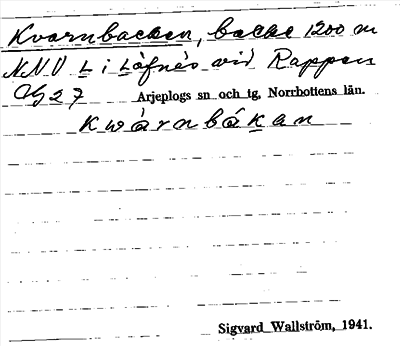 Kvarnbacken, backe 1200 m
NNV L i Löfnäs vid Rappen
27 Arjeplogs sn och tg, Norrbottens län.
kwàrnbákan
Sigvard Wallström, 1941.